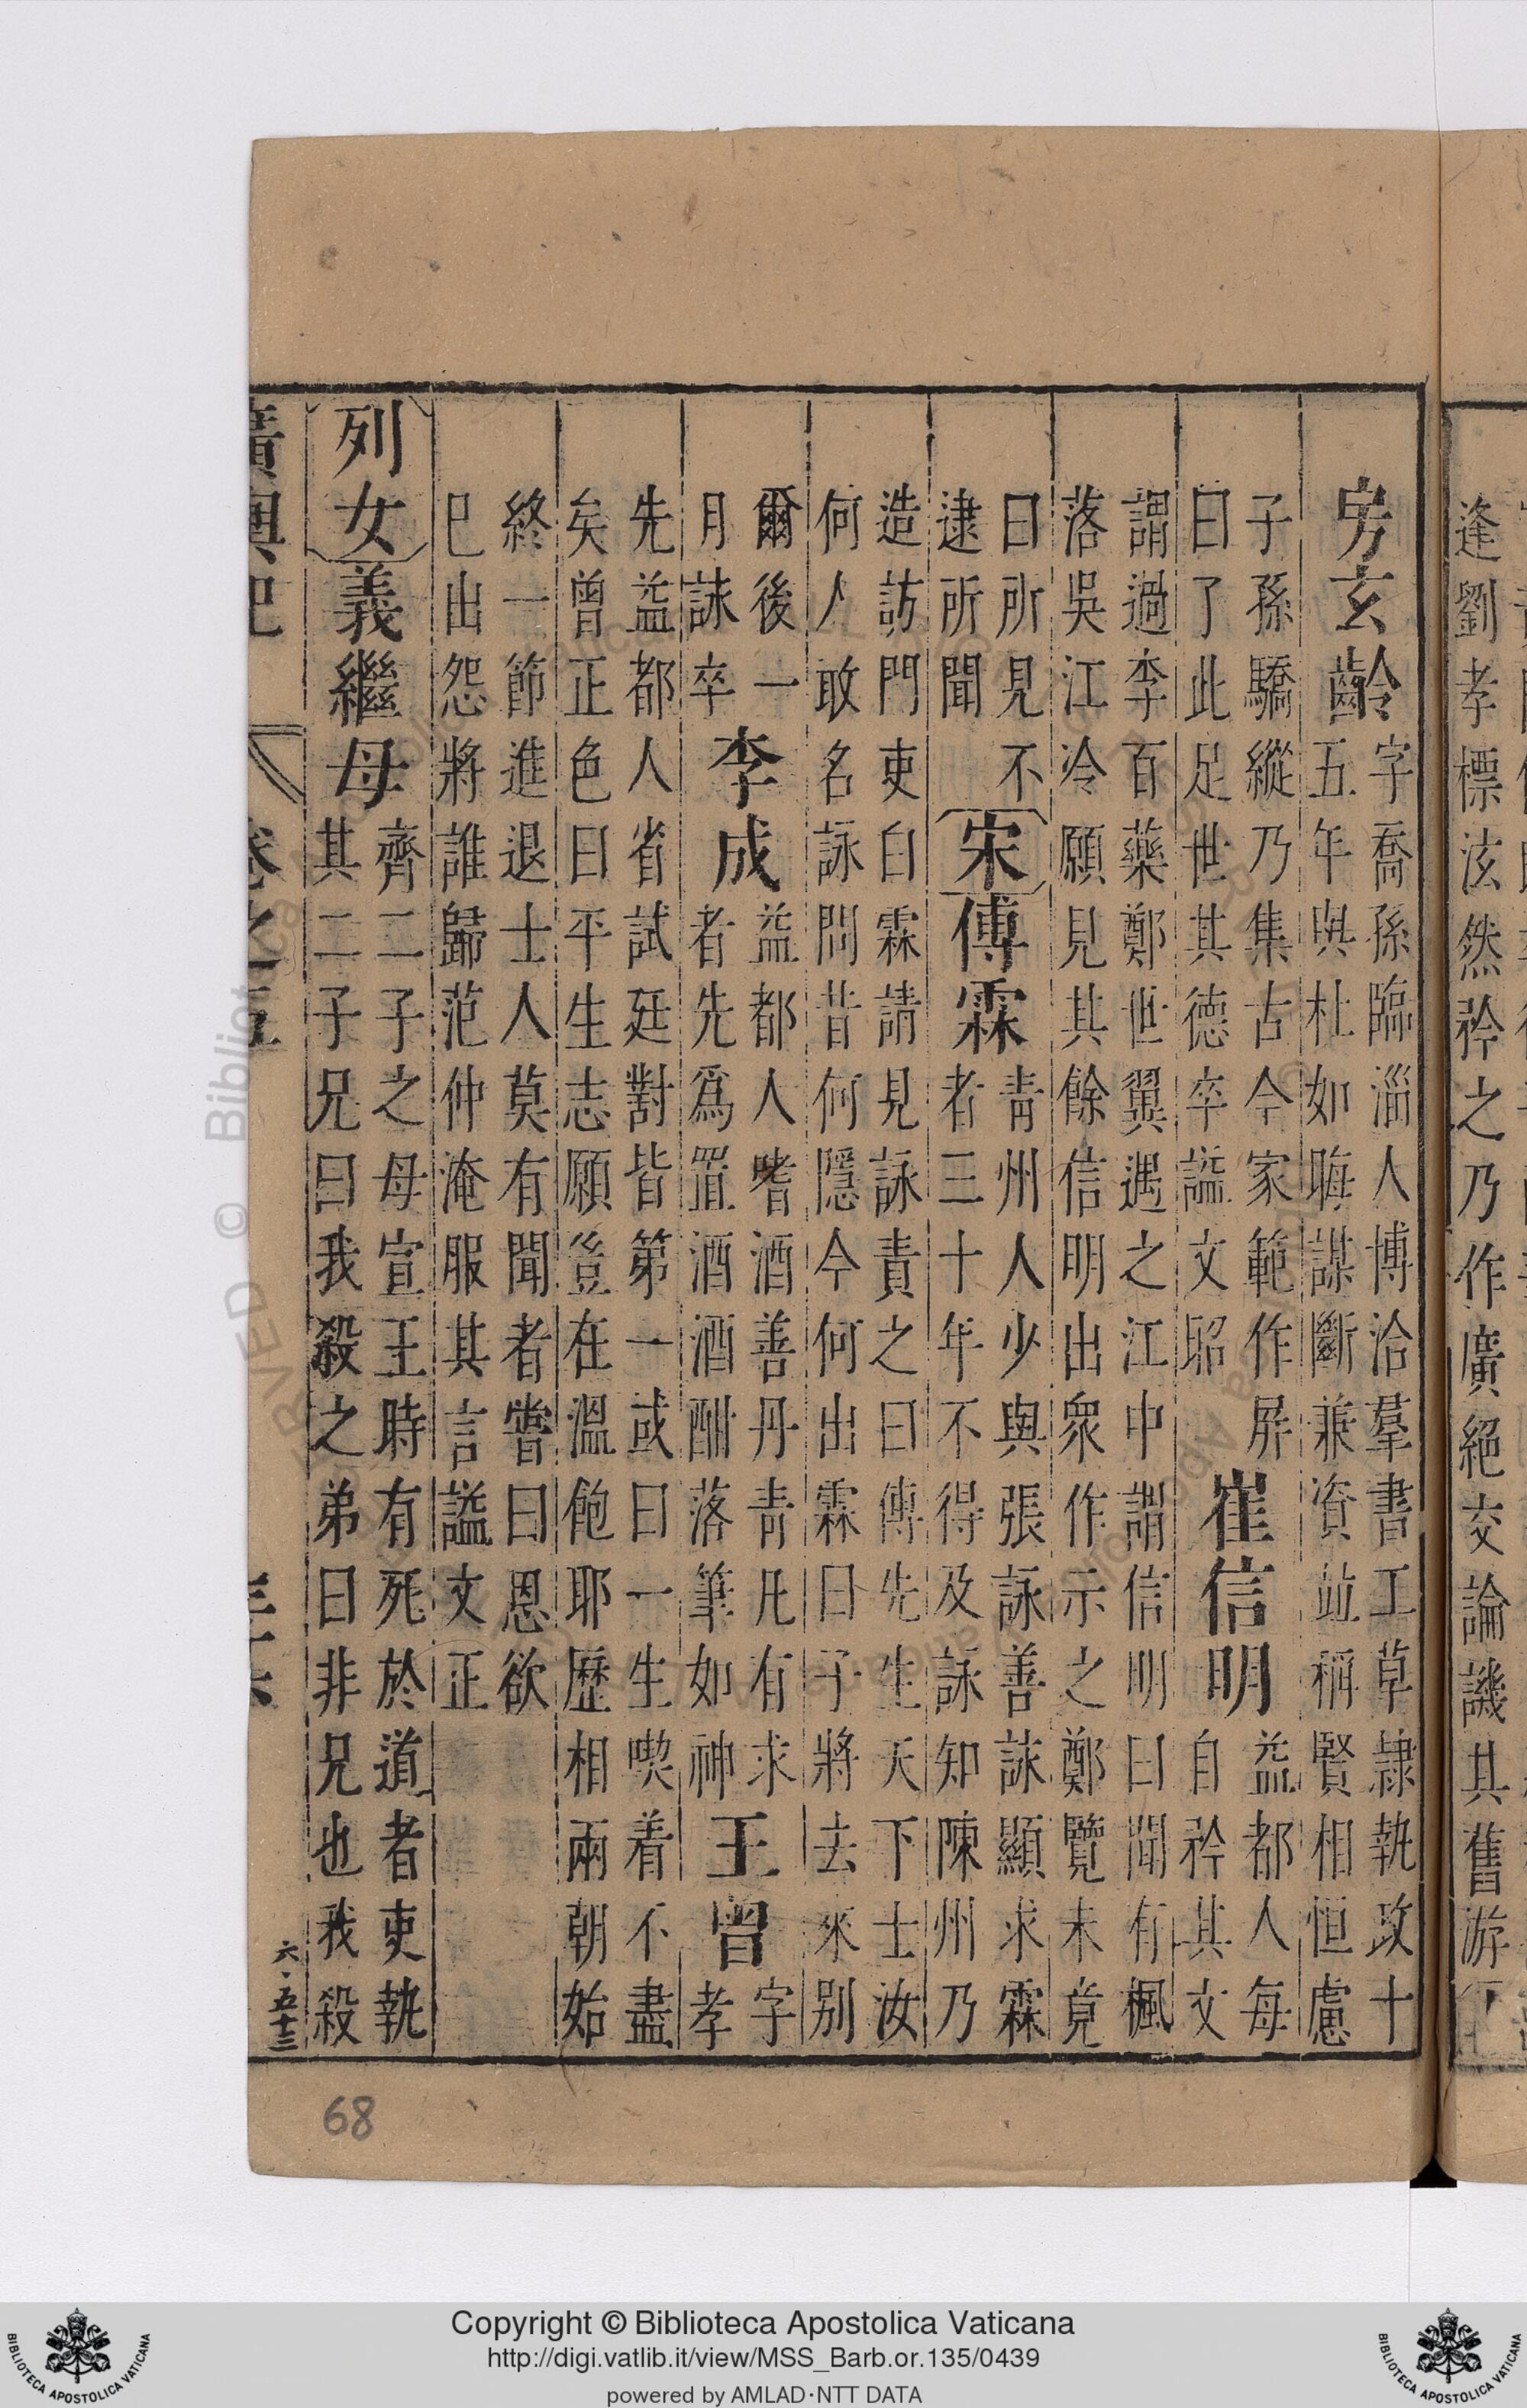 逢劉孝標泫然矜之乃作廣絕交論譏其舊游
房玄齡
字喬孫臨淄人博洽羣書工草隸執政十
五年與杜如晦謀斷兼資竝稱賢相恒慮
子孫驕縱乃集古今家範作屏
曰了此足世其德卒謚文昭
崔信明
益都人每
自矜其文
謂過李百藥鄭世翼遇之江中謂信明曰聞有楓
落吳江冷願見其餘信明出衆作示之鄭覽未竟
曰所見不
逮所聞
宋
傅霖
青州人少與張詠善詠顯求霖
者三十年不得及詠知陳州乃
造訪門吏白霖請見詠責之曰傅先生天下士汝
何人敢名詠問昔何隱今何出霖曰子將去來別
爾後一
月詠卒
李成
益都人嗜酒善丹青凡有求
者先爲置酒酒酣落筆如神
王曾
字
孝
先益都人省試廷對皆第一或曰一生喫着不盡
矣曾正色曰平生志願豈在溫飽耶歷相兩朝始
終一節進退士人莫有聞者嘗曰恩欲
巳出怨將誰歸范仲淹服其言謚文正
列女
義繼母
齊二子之母宣王時有死於道者吏執
其二子兄曰我殺之弟曰非兄也我殺
廣輿記 卷之五
六·五十三
68
Copyright © Biblioteca Apostolica Vaticana
http://digi.vatlib.it/view/MSS_Barb.or.135/0439
powered by AMLAD·NTT DATA
BIBLIOTECA APOSTOLICA VATICANA
BIBLIOTECA APOSTOLICA VATICANA